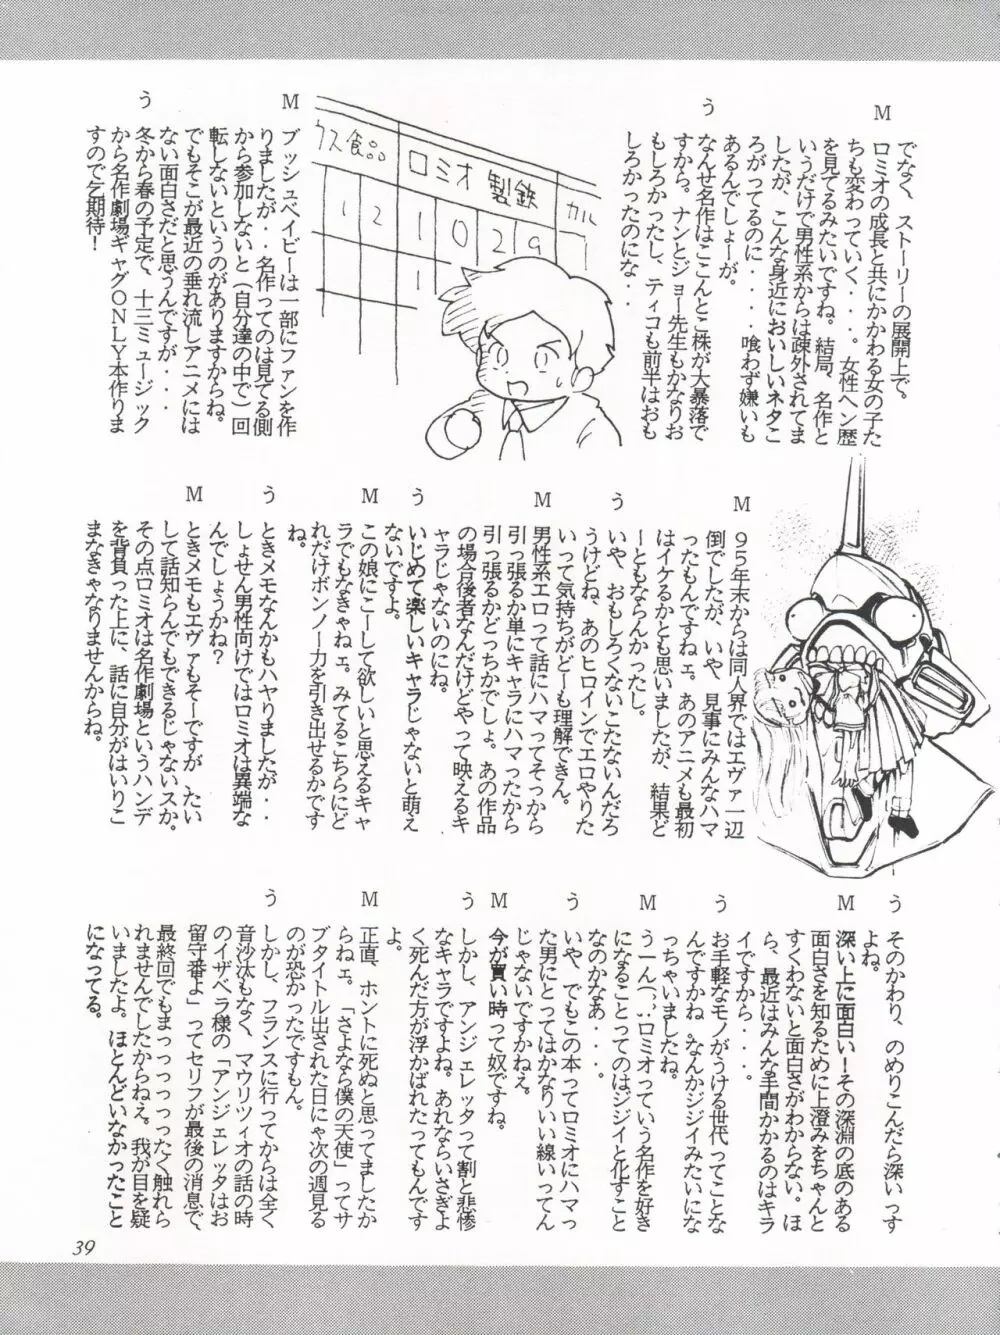 M
でなく、ストーリーの展開上で。
ロミオの成長と共にかかわる女の子た
ちも変わっていく・・・。女性ヘン歴
を見てるみたいですね。結局、名作と
いうだけで男性系からは疎外されてま
したが、こんな身近においしいネタこ
ろがってるのに・・・喰わず嫌いも
あるんでしょーが。
う
なんせ名作はここんとこ株が大暴落で
すから。ナンとジョー先生もかなりお
もしろかったし、ティコも前半はおも
しろかったのにな・・
ウス食品
ロミオ製鉄
カル
1 2 1 0 2 9
1
M
ブッシュベイビーは一部にファンを作
りましたが・・名作ってのは見てる側
から参加しないと(自分達の中で)回
転しないというのがありますからね。
でもそこが最近の垂れ流しアニメには
ない面白さだと思うんですが・・・
う
冬から春の予定で、十三ミュージック
から名作劇場ギャグONLY本作りま
すので乞期待!
M
95年末からは同人界ではエヴァ一辺
倒でしたが、いや、見事にみんなハマ
ったもんですねェ。あのアニメも最初
はイケるかとも思いましたが、結果ど
ーともならんかったし。
う
いや、おもしろくないこたないんだろ
うけどね、あのヒロインでエロやりた
いって気持ちがどーも理解できん。
M
男性系エロって話にハマってそっから
引っ張るか単にキャラにハマったから
引っ張るかどっちかでしょ。あの作品
の場合後者なんだけどやって映えるキ
ャラじゃないのにね。
う
いじめて楽しいキャラじゃないと萌え
ないですよ。
M
この娘にこーして欲しいと思えるキャ
ラでもなきゃねェ。みてるこちらにど
れだけボンノー力を引き出せるかです
ね。
う
ときメモなんかもハヤりましたが・・
しょせん男性向けではロミオは異端な
んでしょうかね?
M
ときメモもエヴァもそーですが、たい
して話知らんでもできるじゃないスか。
その点ロミオは名作劇場というハンデ
を背負った上に、話に自分がはいりこ
まなきゃなりませんからね。
う
そのかわり、のめりこんだら深いっす
よね。
M
深い上に面白い!その深淵の底のある
面白さを知るために上澄みをちゃんと
すくわないと面白さがわからない。ほ
ら、最近はみんな手間かかるのはキラ
イですから・・・。
う
お手軽なモノがうける世代ってことな
んですかね。なんかジジイみたいにな
っちゃいましたね。
M
うーん(‥;ロミオっていう名作を好き
になることってのはジジイと化すこと
なのかなあ・・・。
う
いや、でもこの本ってロミオにハマっ
た男にとってはかなりいい線いってん
じゃないですかねえ。
M
今が買い時って奴ですね。
う
しかし、アンジェレッタって割と悲惨
なキャラですよね。あれならいさぎよ
く死んだ方が浮かばれたってもんです
よ。
M
正直、ホントに死ぬと思ってましたか
らねェ。「さよなら僕の天使」ってサ
ブタイトル出された日にゃ次の週見る
のが恐かったですもん。
う
しかし、フランスに行ってからは全く
音沙汰もなく、マウリツィオの話の時
のイザベラ様の「アンジェレッタはお
留守番よ」ってセリフが最後の消息で、
最終回でもまっっっっったく触れら
れませんでしたからねえ。我が目を疑
いましたよ。ほとんどいなかったこと
になってる。
39